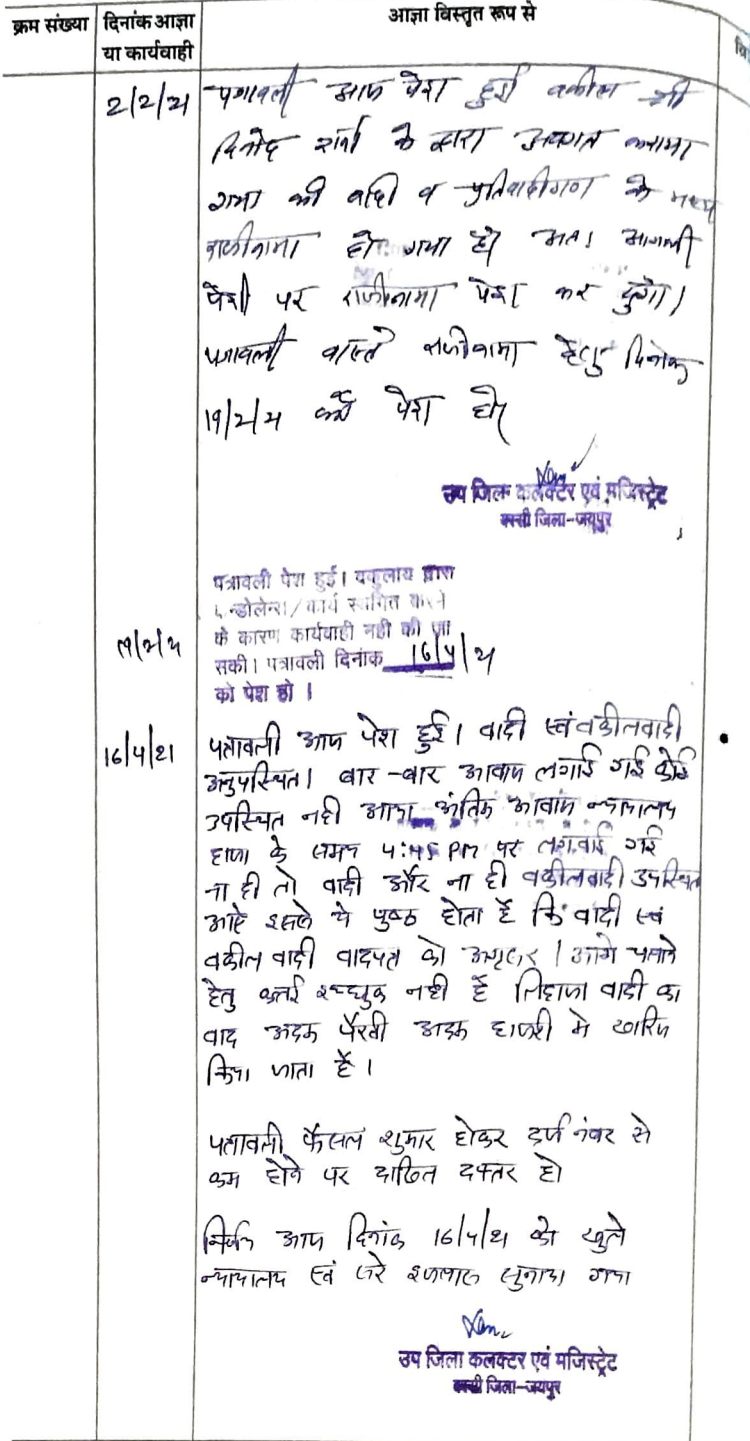 क्रम संख्या
दिनांक आज्ञा
या कार्यवाही
आज्ञा विस्तृत रूप से
2/2/21
पत्रावली आज पेश हुई वकील श्री
विनोद शर्मा के द्वारा अवगत कराया
गया की वादी व प्रतिवादीगण के मध्य
राजीनामा हो गया है। अतः आगामी
पेशी पर राजीनामा पेश कर दुंगा।
पत्रावली वास्ते राजीनामा हेतु दिनांक
19/2/21 को पेश हो
उप जिला कलक्टर एवं मजिस्ट्रेट
बस्सी जिला-जयपुर
19/2/21
पत्रावली पेश हुई। वकुलाय द्वारा
कन्डोलेन्स/कार्य स्थगित करने
के कारण कार्यवाही नही की जा
सकी। पत्रावली दिनांक 16/4/21
को पेश हो ।
16/4/21
पत्रावली आज पेश हुई। वादी एवं वकीलवादी
अनुपस्थित। बार-बार आवाज लगाई गई कोई
उपस्थित नही आया अंतिम आवाज न्यायालय
हाजा के समय 4:45 PM पर लगवाई गई
ना ही तो वादी और ना ही वकीलवादी उपस्थित
आऐ इससे ये पुष्ठ होता है कि वादी एवं
वकील वादी वादपत्र को अग्रसर / आगे चलाने
हेतु कतई इच्छुक नही है लिहाजा वादी का
वाद अदम पैरवी अदम हाजरी मे खारिज
किया जाता है ।
पत्रावली फैसल शुमार होकर दर्ज नंबर से
कम होने पर दाखिल दफ्तर हो
निर्णय आज दिनांक 16/4/21 को खुले
न्यायालय एवं सरे इजलास सुनाया गया
उप जिला कलक्टर एवं मजिस्ट्रेट
बस्सी जिला-जयपुर